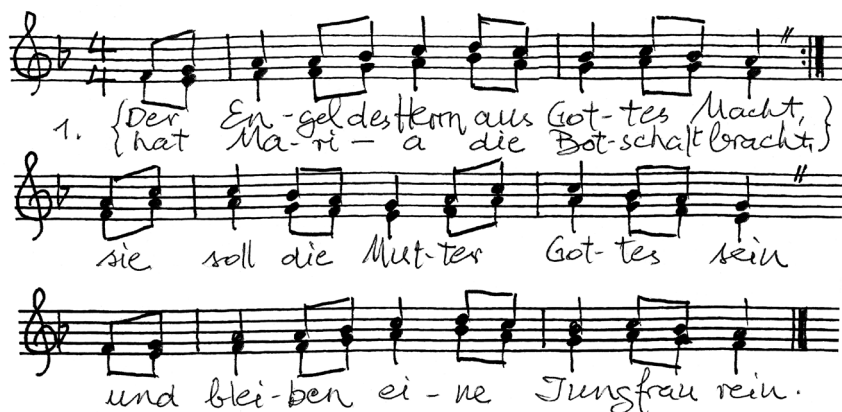 4
4
1. {Der En-gel des Herrn aus Got-tes Macht,}
{hat Ma-ri-a die Bot-schaft bracht,}
sie soll die Mut-ter Got-tes sein
und blei-ben ei-ne Jungfrau rein.